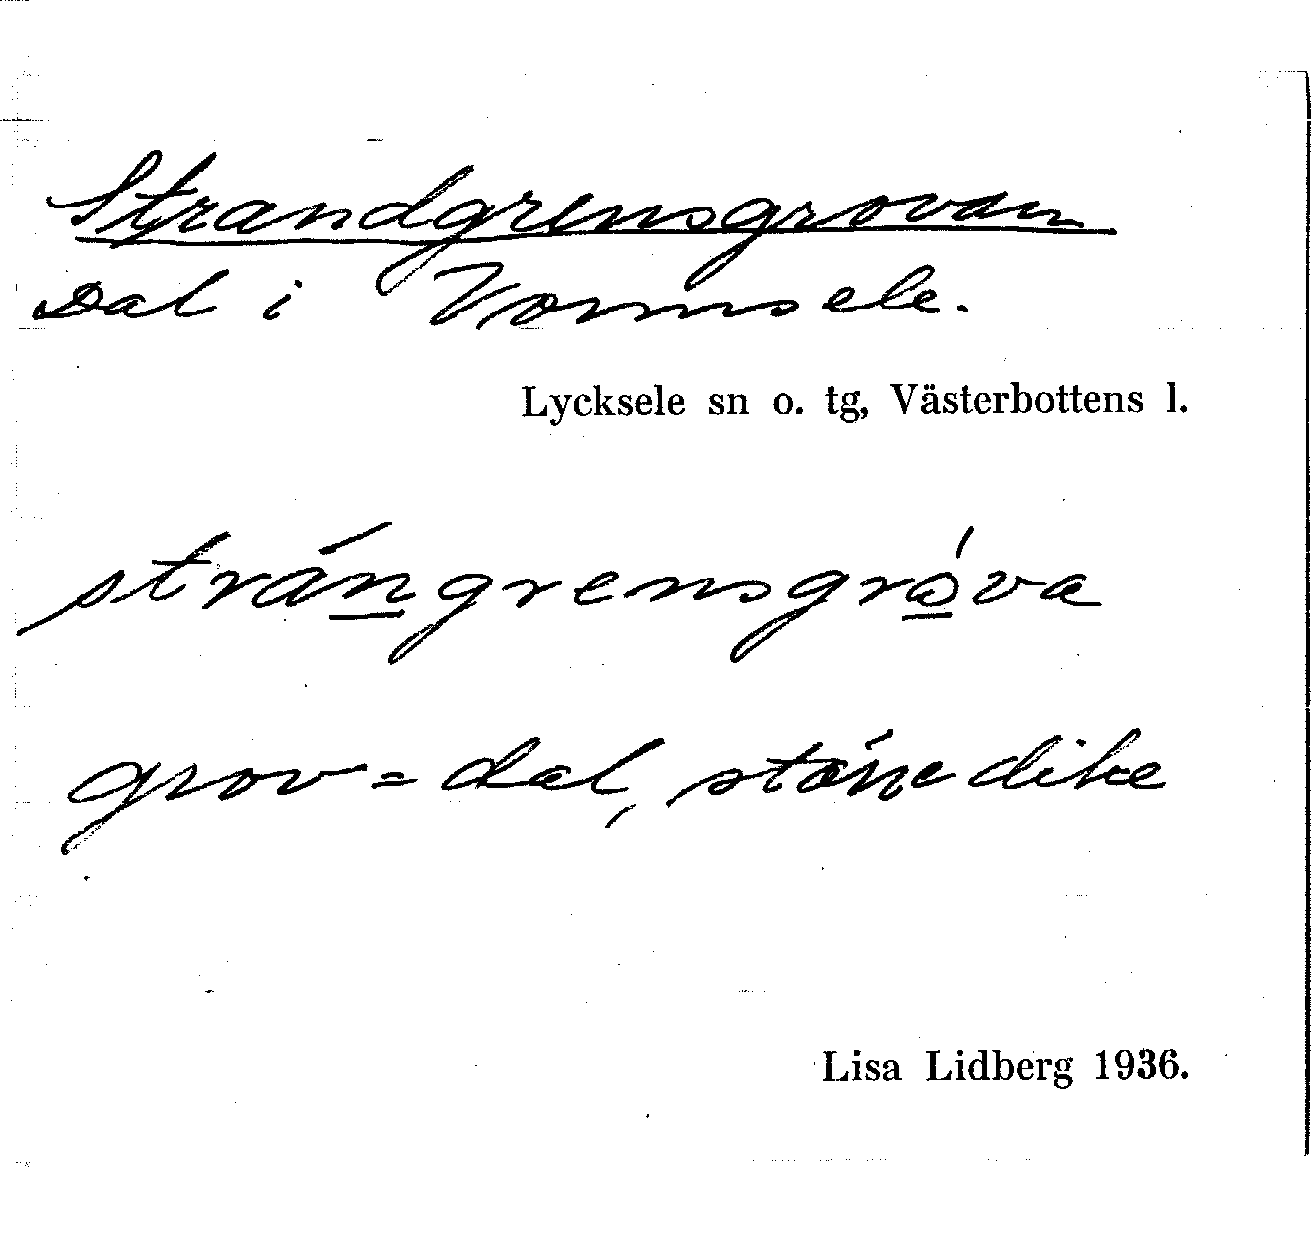 Strandgrensgrovan
Dal i Vormsele.
Lycksele sn o. tg, Västerbottens l.
strángrensgróva
grov = dal, större dike
Lisa Lidberg 1936.